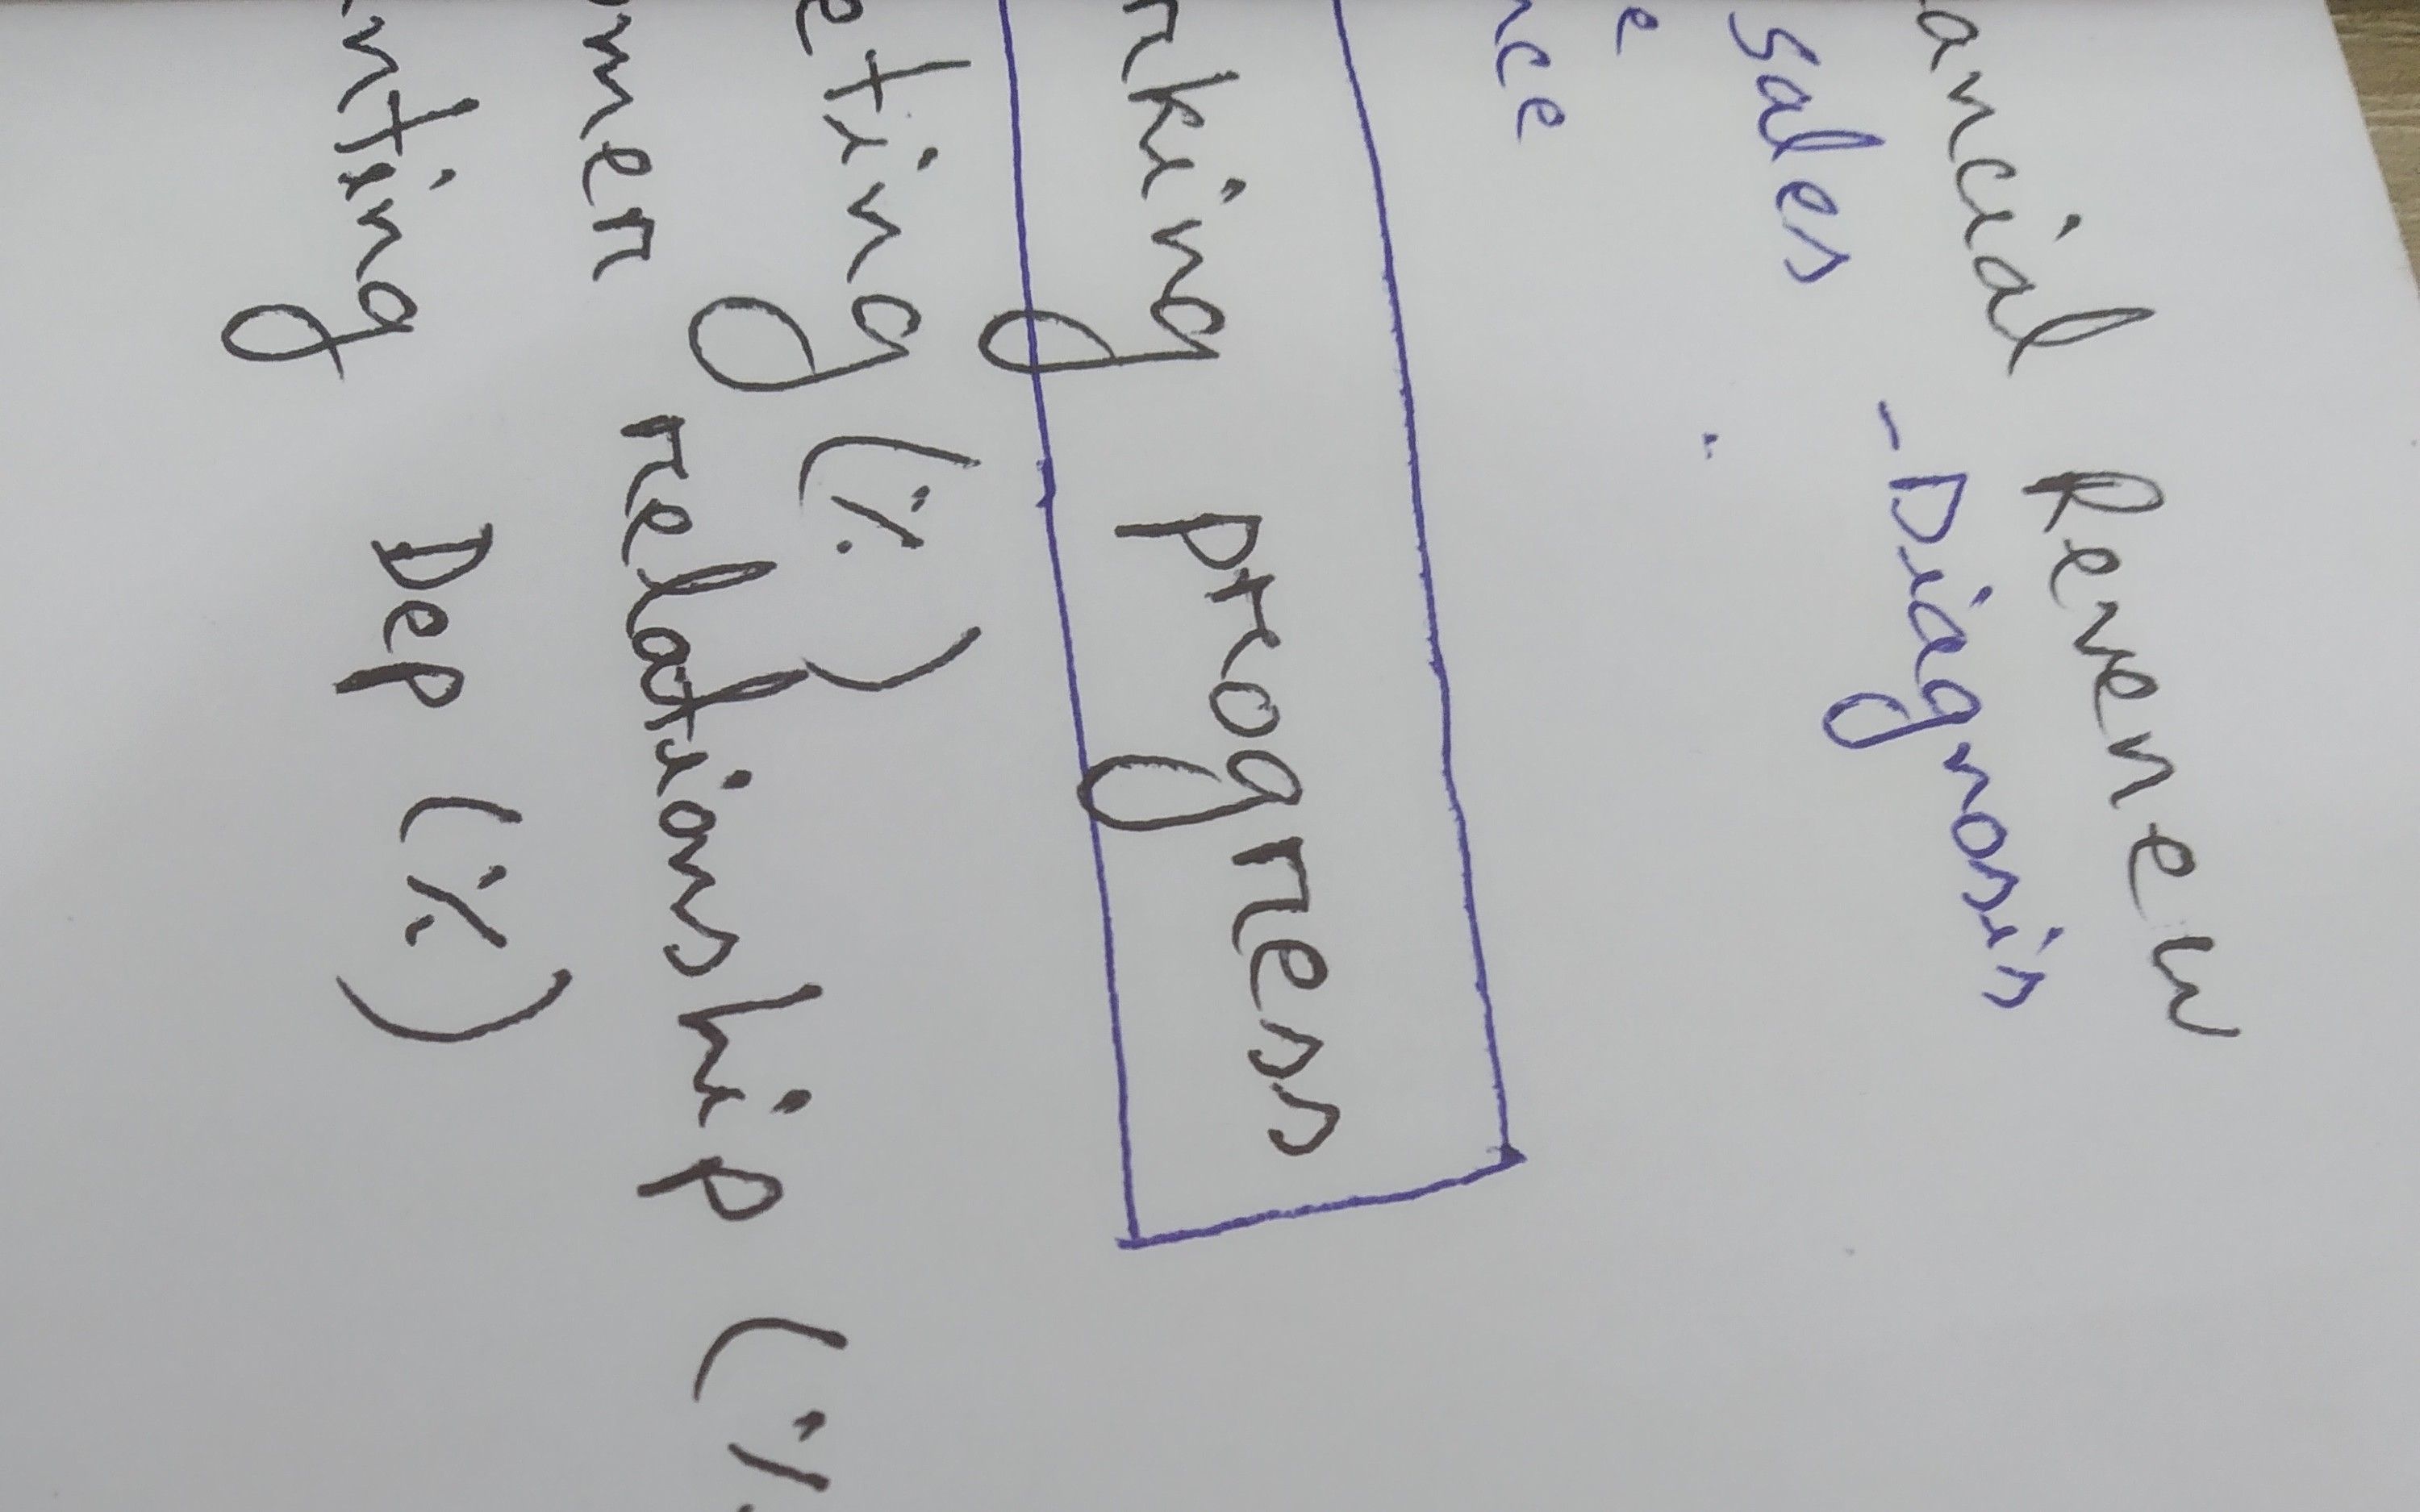 ancial Reveneu
sales - Diagnosis
e
nce
nking progress
eting (%)
omer relationship (%
nting Dep (%)